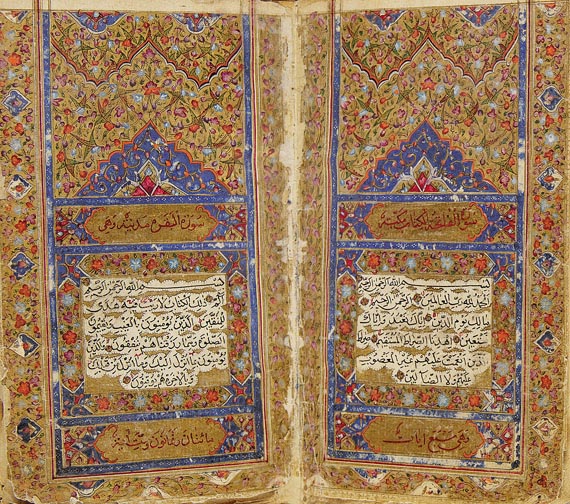 سورة الفاتحة الكتاب مكية
بسم الله الرحمن الرحيم
الحمد لله رب العالمين الرحمن الرحيم
مالك يوم الدين اياك نعبد واياك
نستعين اهدنا الصراط المستقيم صراط
الذين انعمت عليهم غير المغضوب
عليهم ولا الضالين
وهي سبع ايات
سورة البقرة مدنية وهي
بسم الله الرحمن الرحيم
الم ذلك الكتاب لا ريب فيه هدى
للمتقين الذين يؤمنون بالغيب ويقيمون
الصلوة ومما رزقناهم ينفقون والذين
يؤمنون بما انزل اليك وما انزل من قبلك
وبالاخرة هم يوقنون
مائتان وثمانون وست اية